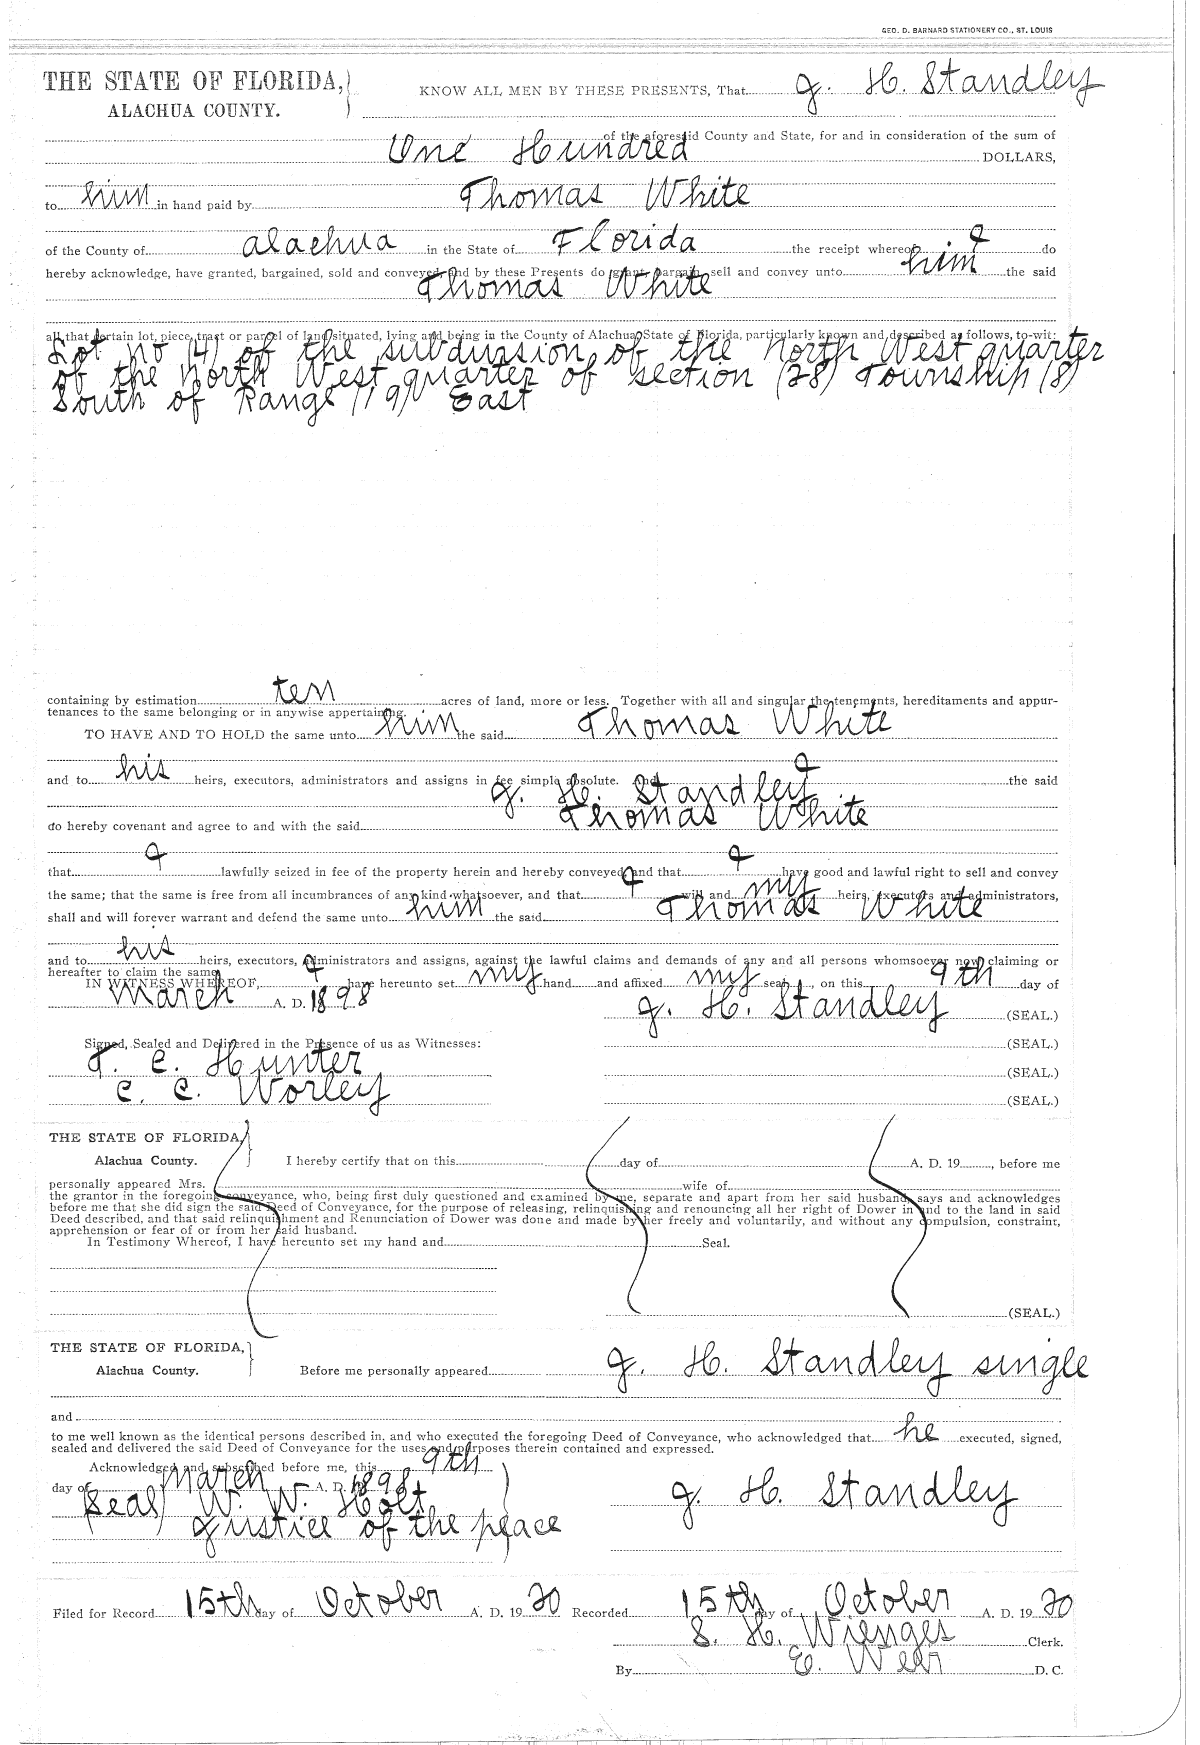 GEO. D. BARNARD STATIONERY CO., ST. LOUIS
THE STATE OF FLORIDA,
ALACHUA COUNTY.
KNOW ALL MEN BY THESE PRESENTS, That J. H. Standley
of the aforesaid County and State, for and in consideration of the sum of
One Hundred DOLLARS,
to him in hand paid by Thomas White
of the County of Alachua in the State of Florida the receipt whereof I do
hereby acknowledge, have granted, bargained, sold and conveyed and by these Presents do grant, bargain, sell and convey unto him the said
Thomas White
all that certain lot, piece, tract or parcel of land situated, lying and being in the County of Alachua State of Florida, particularly known and described as follows, to-wit:
Lot no (4) of the subdivision of the North West quarter
of the North West quarter of section (28) Township (8)
South of Range (19) East
containing by estimation ten acres of land, more or less. Together with all and singular the tenements, hereditaments and appur-
tenances to the same belonging or in anywise appertaining.
TO HAVE AND TO HOLD the same unto him the said Thomas White
and to his heirs, executors, administrators and assigns in fee simple absolute. And I the said
J. H. Standley
do hereby covenant and agree to and with the said Thomas White
that I lawfully seized in fee of the property herein and hereby conveyed and that I have good and lawful right to sell and convey
the same; that the same is free from all incumbrances of any kind whatsoever, and that I will and my heirs, executors and administrators,
shall and will forever warrant and defend the same unto him the said Thomas White
and to his heirs, executors, administrators and assigns, against the lawful claims and demands of any and all persons whomsoever now claiming or
hereafter to claim the same.
IN WITNESS WHEREOF, I have hereunto set my hand and affixed my seal, on this 9th day of
March A. D. 1898
J. H. Standley (SEAL.)
Signed, Sealed and Delivered in the Presence of us as Witnesses: (SEAL.)
T. C. Hunter (SEAL.)
C. C. Worley (SEAL.)
THE STATE OF FLORIDA,
Alachua County.
I hereby certify that on this day of A. D. 19 , before me
personally appeared Mrs. wife of
the grantor in the foregoing conveyance, who, being first duly questioned and examined by me, separate and apart from her said husband, says and acknowledges
before me that she did sign the said Deed of Conveyance, for the purpose of releasing, relinquishing and renouncing all her right of Dower in and to the land in said
Deed described, and that said relinquishment and Renunciation of Dower was done and made by her freely and voluntarily, and without any compulsion, constraint,
apprehension or fear of or from her said husband.
In Testimony Whereof, I have hereunto set my hand and Seal.
(SEAL.)
THE STATE OF FLORIDA,
Alachua County.
Before me personally appeared J. H. Standley single
and
to me well known as the identical persons described in, and who executed the foregoing Deed of Conveyance, who acknowledged that he executed, signed,
sealed and delivered the said Deed of Conveyance for the uses and purposes therein contained and expressed.
Acknowledged and subscribed before me, this 9th
day of March A. D. 1898
(Seal) W. W. Holt
Justice of the peace
J. H. Standley
Filed for Record 15th day of October A. D. 19 20 Recorded 15th day of October A. D. 19 20
S. H. Wienges Clerk.
By E. Weir D. C.